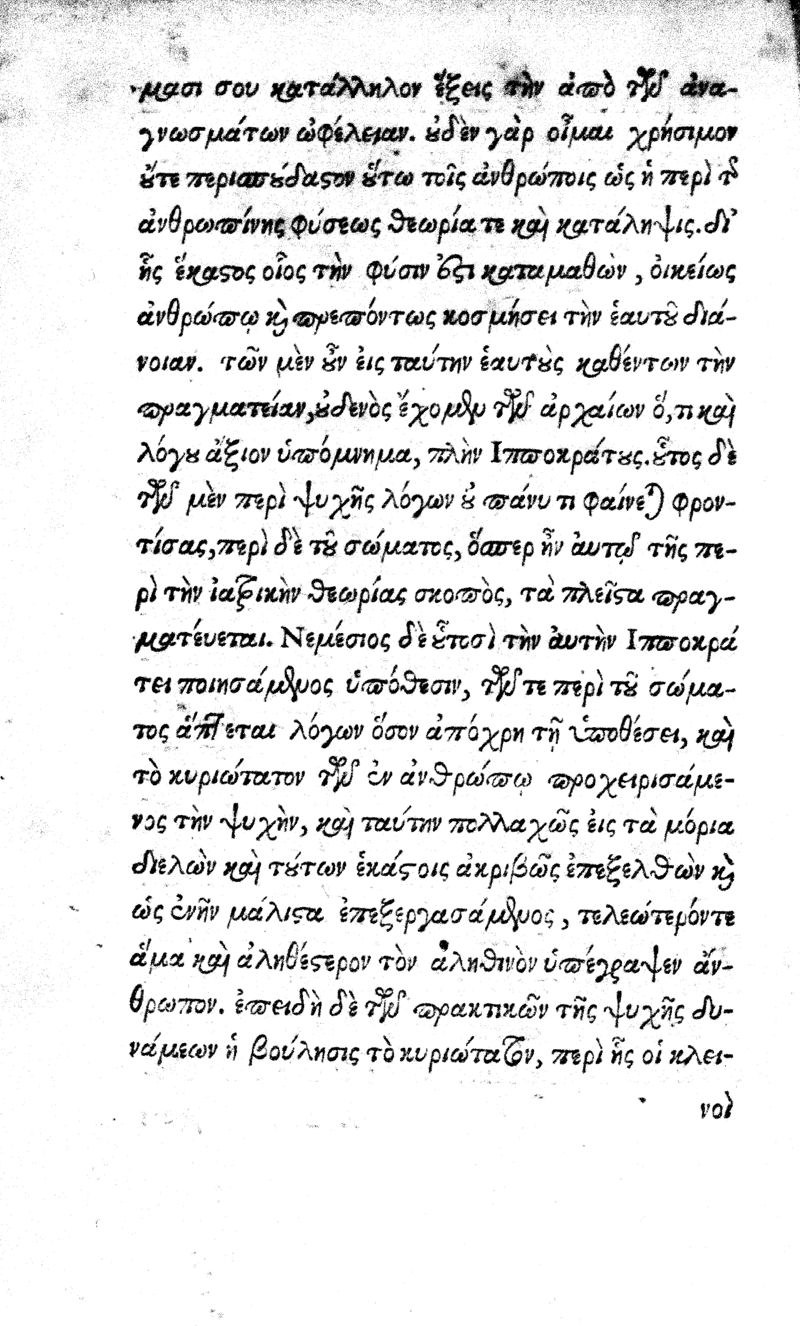 μασι σου κατάλληλον ἕξεις τὴν ἀπὸ τῶν ἀνα-
γνωσμάτων ὠφέλειαν. οὐδὲν γὰρ οἶμαι χρήσιμον
οὔτε περισπούδαστον οὕτω τοῖς ἀνθρώποις ὡς ἡ περὶ τῆς
ἀνθρωπίνης φύσεως θεωρία τε καὶ κατάληψις. δι'
ἧς ἕκαστος οἷος τὴν φύσιν ἐστὶ καταμαθὼν, οἰκείως
ἀνθρώπῳ καὶ πρεπόντως κοσμήσει τὴν ἑαυτοῦ διά-
νοιαν. τῶν μὲν οὖν εἰς ταύτην ἑαυτοὺς καθέντων τὴν
πραγματείαν, οὐδενὸς ἔχομεν τῶν ἀρχαίων ὅ,τι καὶ
λόγου ἄξιον ὑπόμνημα, πλὴν Ιπποκράτους. οὗτος δὲ
τῶν μὲν περὶ ψυχῆς λόγων οὐ πάνυ τι φαίνεται φρον-
τίσας, περὶ δὲ τοῦ σώματος, ὅσπερ ἦν αὐτῷ τῆς πε-
ρὶ τὴν ἰατρικὴν θεωρίας σκοπὸς, τὰ πλεῖστα πραγ-
ματεύεται. Νεμέσιος δὲ οὗτοσὶ τὴν αὐτὴν Ιπποκρά
τει ποιησάμενος ὑπόθεσιν, τῶν τε περὶ τοῦ σώμα-
τος ἅπτεται λόγων ὅσον ἀπόχρη τῇ ὑποθέσει, καὶ
τὸ κυριώτατον τῶν ἐν ἀνθρώπῳ προχειρισάμε-
νος τὴν ψυχὴν, καὶ ταύτην πολλαχῶς εἰς τὰ μόρια
διελὼν καὶ τούτων ἑκάστοις ἀκριβῶς ἐπεξελθὼν καὶ
ὡς ἐνῆν μάλιστα ἐπεξεργασάμενος, τελεώτερόντε
ἅμα καὶ ἀληθέστερον τὸν ἀληθινὸν ὑπέγραψεν ἄν-
θρωπον. ἐπειδὴ δὲ τῶν πρακτικῶν τῆς ψυχῆς δυ-
νάμεων ἡ βούλησις τὸ κυριώτατον, περὶ ἧς οἱ κλει-
νοὶ